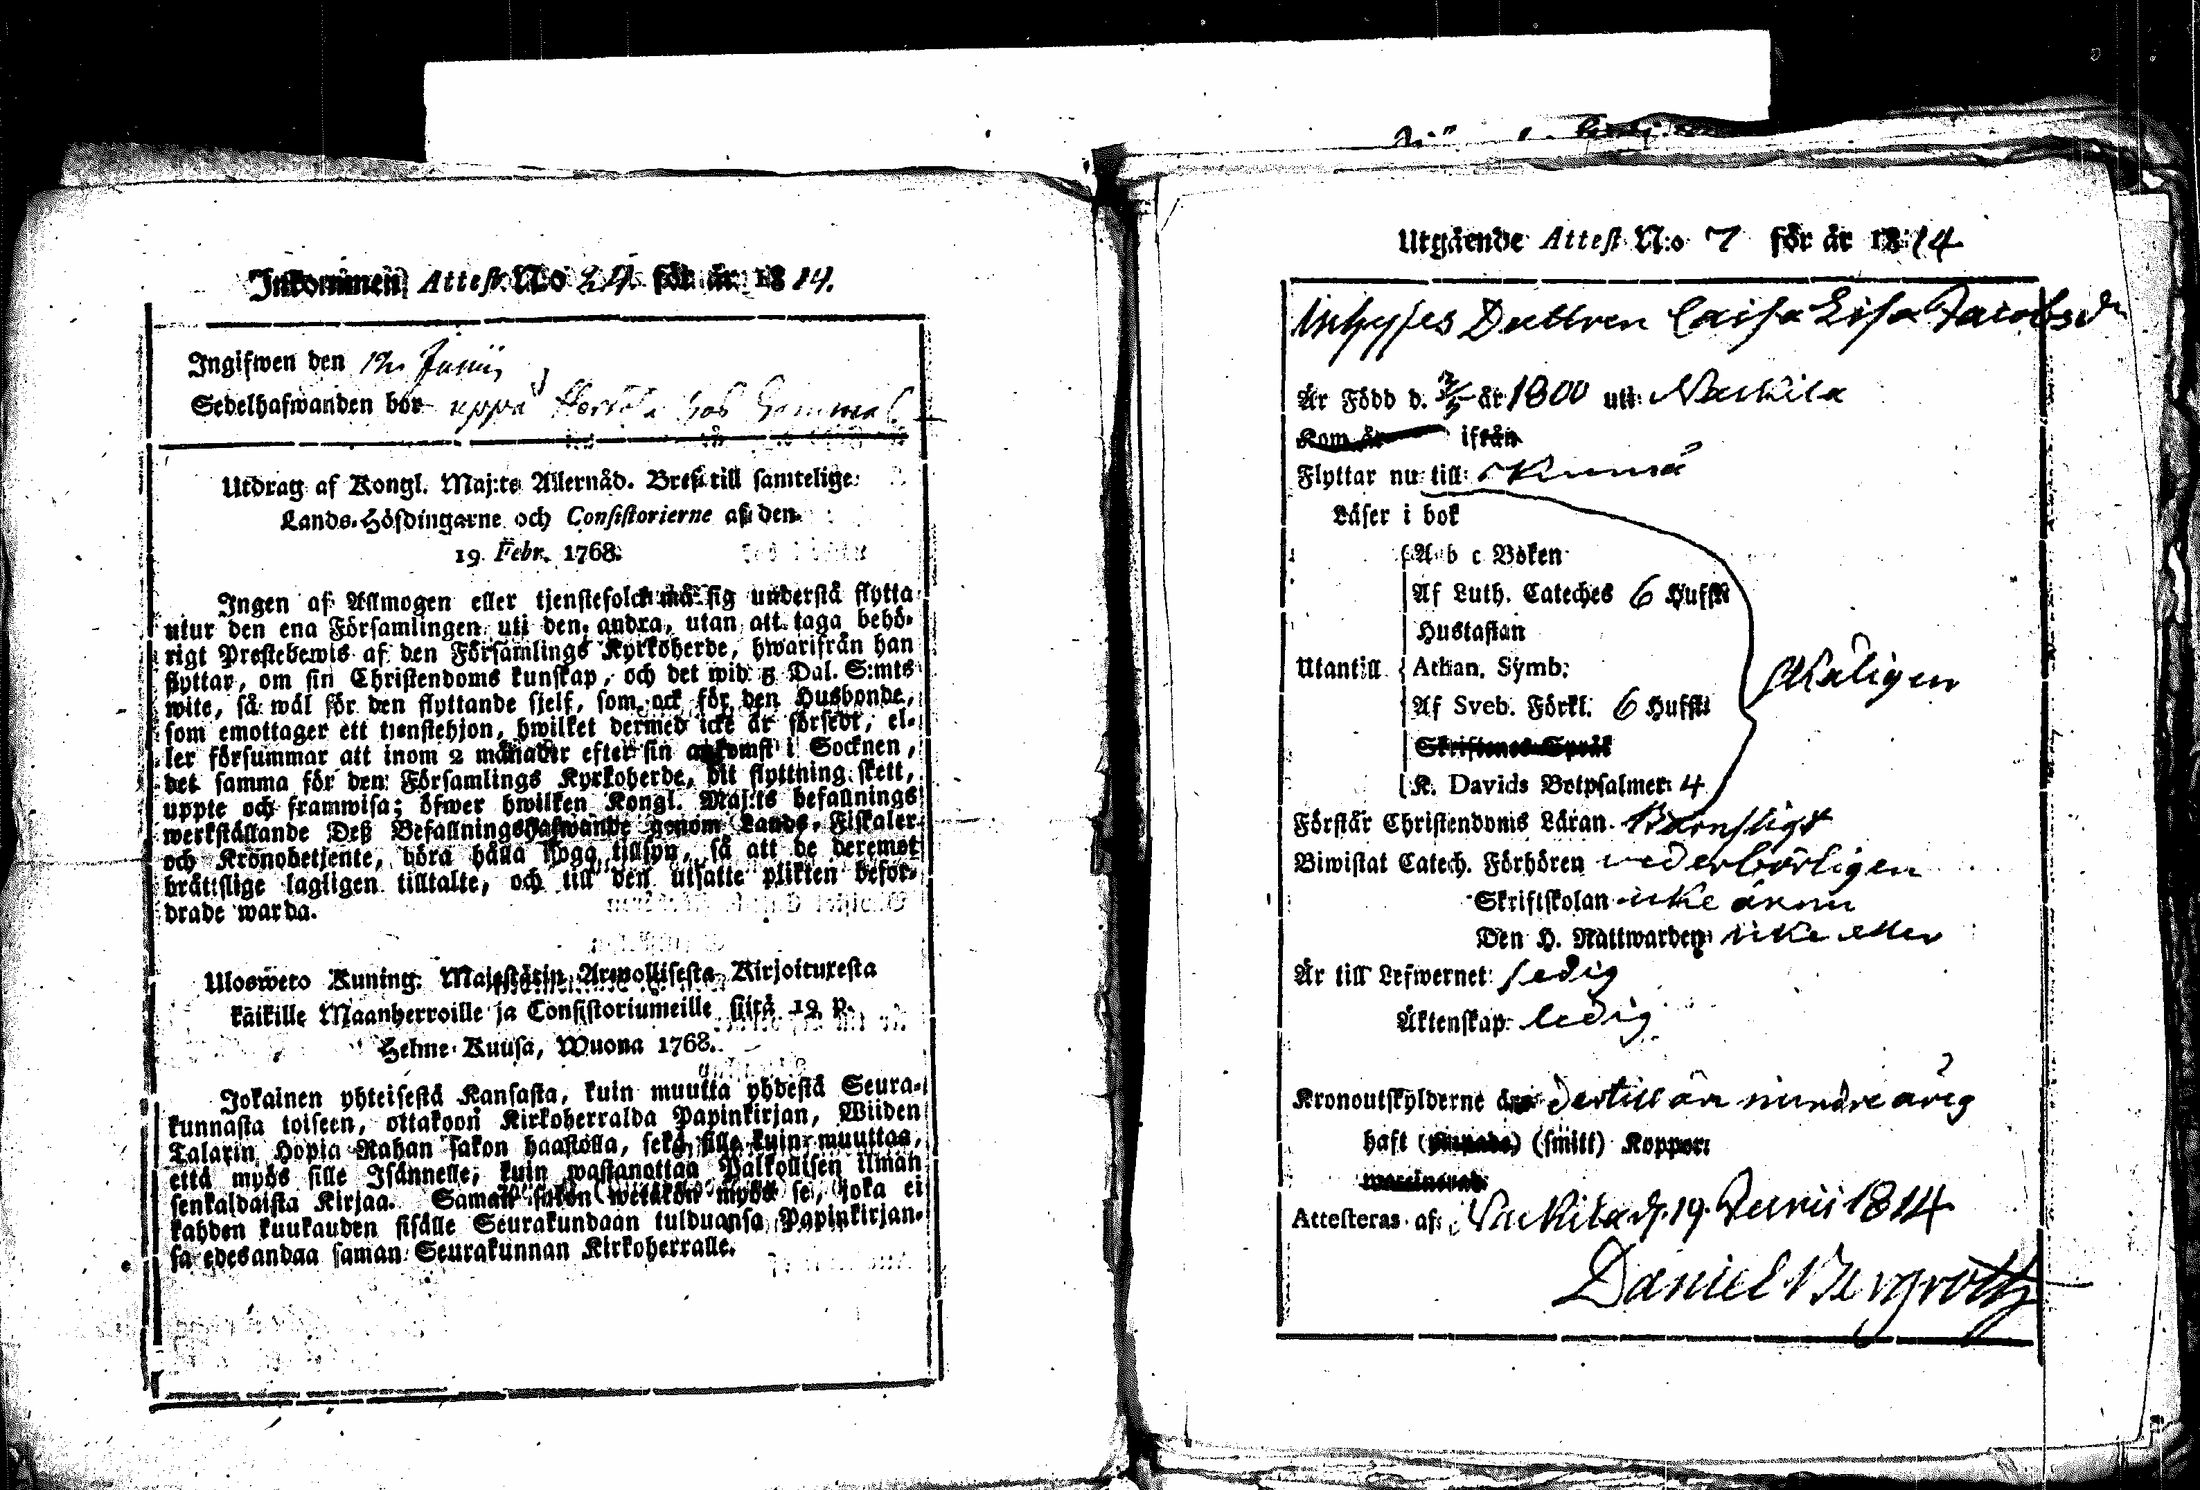 Inkommen Attest N:o 24 för år 1814.
Ingifwen den 12 Junii,
Sedelhafwanden bor uppå hos Gammal
Utdrag af Kongl. Maj:ts Allernåd. Bref till samtelige
Lands-Höfdingarne och Consistorierne af den
19 Febr. 1768.
Ingen af Allmogen eller tjenstefolck må sig understå flytta
utur den ena Församlingen uti den andra, utan att taga behö-
rigt Prestebewis af den Församlings Kyrkoherde, hwarifrån han
flyttar, om sin Christendoms kunskap, och det wid 5 Dal. S:mts
wite, så wäl för den flyttande sjelf, som ock för den Husbonde,
som emottager ett tjenstehjon, hwilket dermed icke är försedt, el-
ler försummar att inom 2 månader efter sin ankomst i Socknen,
det samma för den Församlings Kyrkoherde, dit flyttning skett,
uppte och framwisa; öfwer hwilken Kongl. Maj:ts befallnings
werkställande Deß Befallningshafwande genom Lands-Fiskaler
och Kronobetjente, böra hålla noga tillsyn, så att de deremot
brättslige lagligen tilltalte, och till den utsatte plikten beför-
drade warda.
Ulosweto Kuning. Majestätin Armollisesta Kirjoituxesta
kaikille Maanherroille ja Consistoriumeille siitä 19 p.
Helme-Kuusa, Wuona 1768.
Jokainen yhteisestä Kansasta, kuin muutta yhdestä Seura-
kunnasta toiseen, ottakoon Kirkoherralda Papinkirjan, Wiiden
Talarin Hopia Rahan sakon haastolla, sekä sille kuin muuttaa,
että myös sille Isännelle, kuin wastanottaa Palkollisen ilman
senkaldaista Kirjaa. Saman sakon wetäkön myös se, joka ei
kahden kuukauden sisälle Seurakundaan tulduansa Papinkirjan-
sa edesandaa saman Seurakunnan Kirkoherralle.
Utgående Attest N:o 7 för år 1814
Inhyses Dottren Caisa Lisa Jacobsdr
Är Född d. år 1800 uti Nackila
Kom år ifrån
Flyttar nu till Kumå
Läser i bok
A b c Boken
Af Luth. Cateches 6 Hufst
Hustaflan
Utantill Athan. Symb:
Skäligen
Af Sveb. Förkl. 6 Hufst
Skriftenes Språk
K. Davids Botpsalmer 4
Förstår Christendoms Läran Barnsligt
Biwistat Catech. Förhören wederbörligen
Skriftskolan icke ännu
Den H. Nattwarden icke eller
Är till Lefwernet sedig
Äktenskap ledig
Kronoutskylderne dertill är minderårig
haft (smitt) Koppor
Attesteras af Nackila d. 19 Junii 1814
Daniel Bergroth